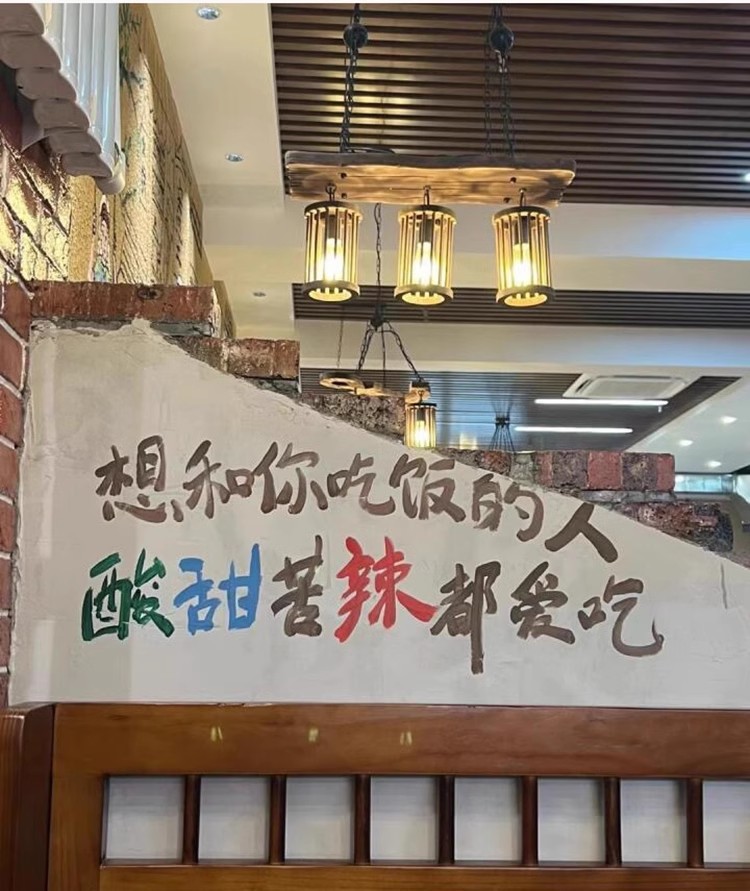 想和你吃饭的人
酸甜苦辣都爱吃